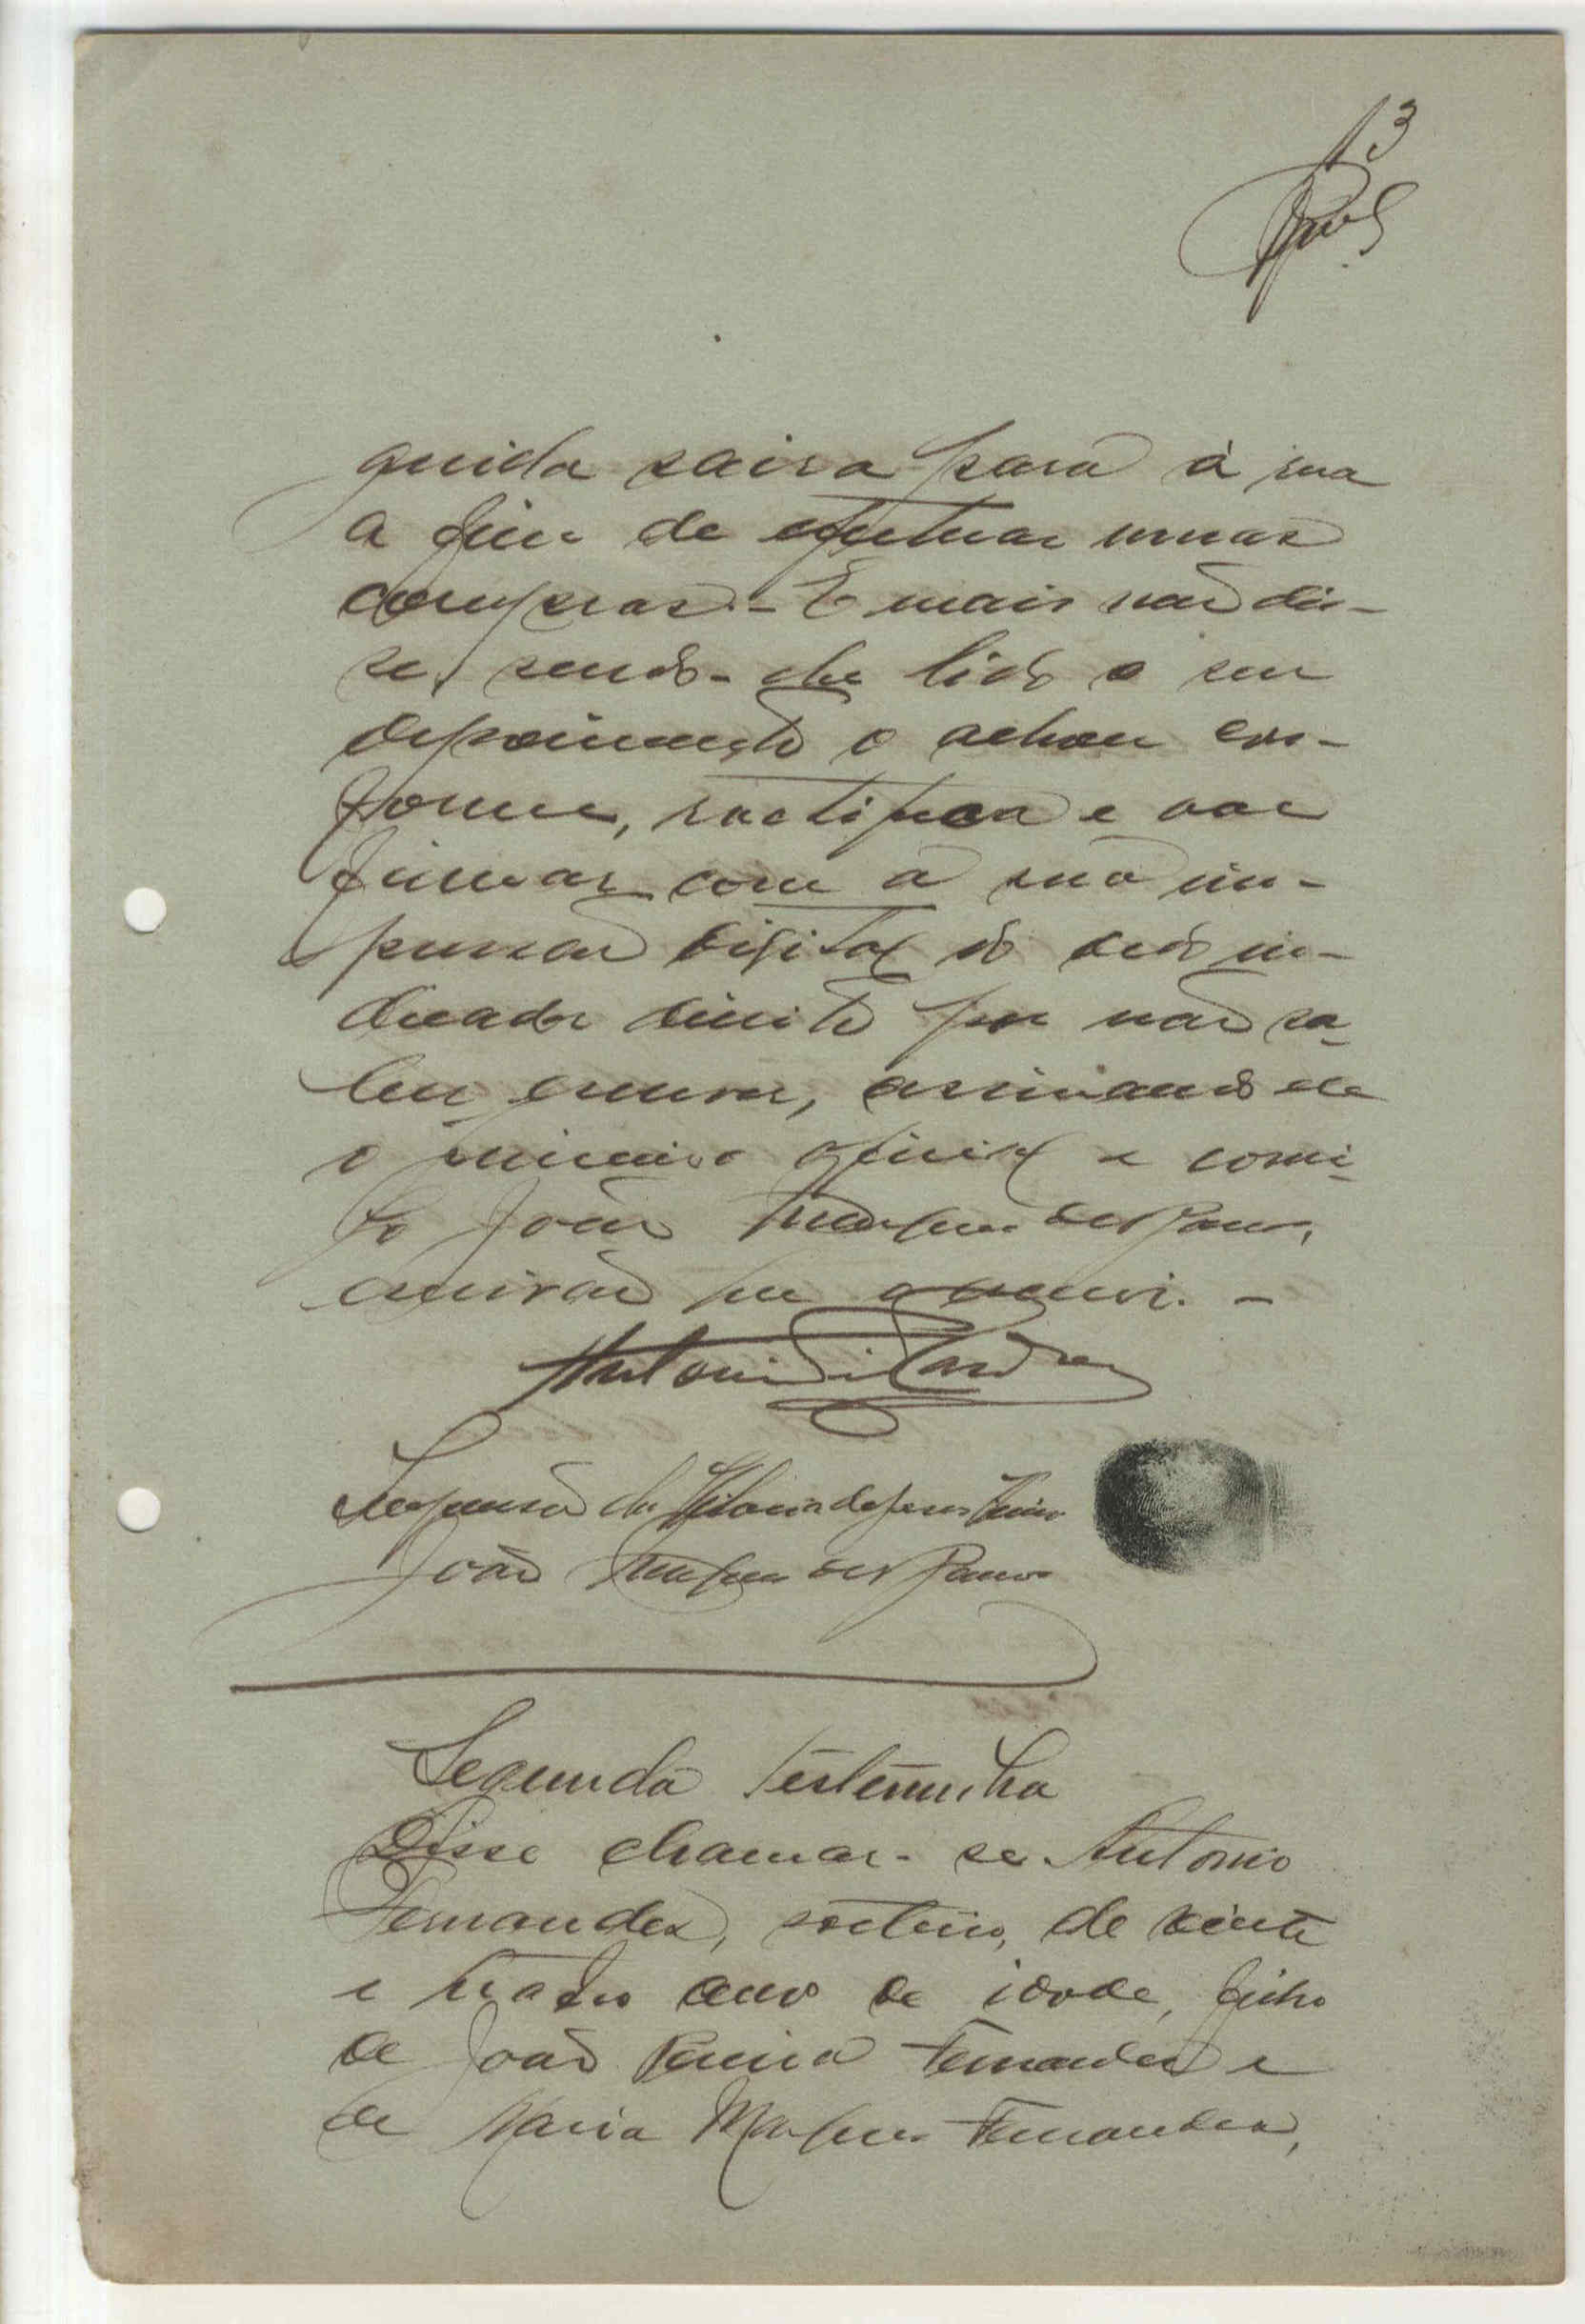 13
guida saira para á rua
a fim de efectuar umas
compras. - E mais não dis-
se, sendo-lhe lido o seu
depoimento o achou con-
forme, ractifica e vae
firmar com a sua im-
pressão digital do dedo in-
dicador direito por não sa-
ber escrever, assinando ele
o primeiro oficial e comi-
go João Marques dos Ramos,
escrivão que o escrevi. -
Antonio
Impressão de de Jesus
João Marques dos Ramos
Segunda Testemunha
Disse chamar-se Antonio
Fernandes, solteiro, de vinte
e quatro anos de idade, filho
de João Pereira Fernandes e
de Maria Marques Fernandes,